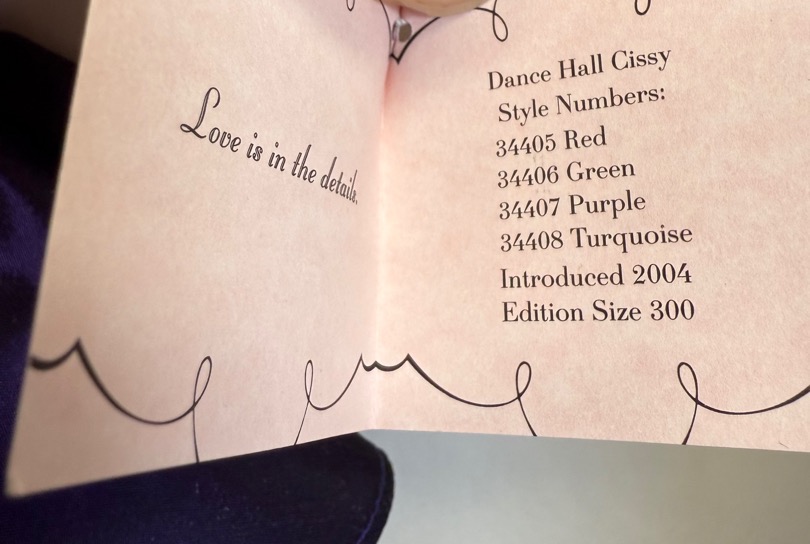 Love is in the details.
Dance Hall Cissy
Style Numbers:
34405 Red
34406 Green
34407 Purple
34408 Turquoise
Introduced 2004
Edition Size 300